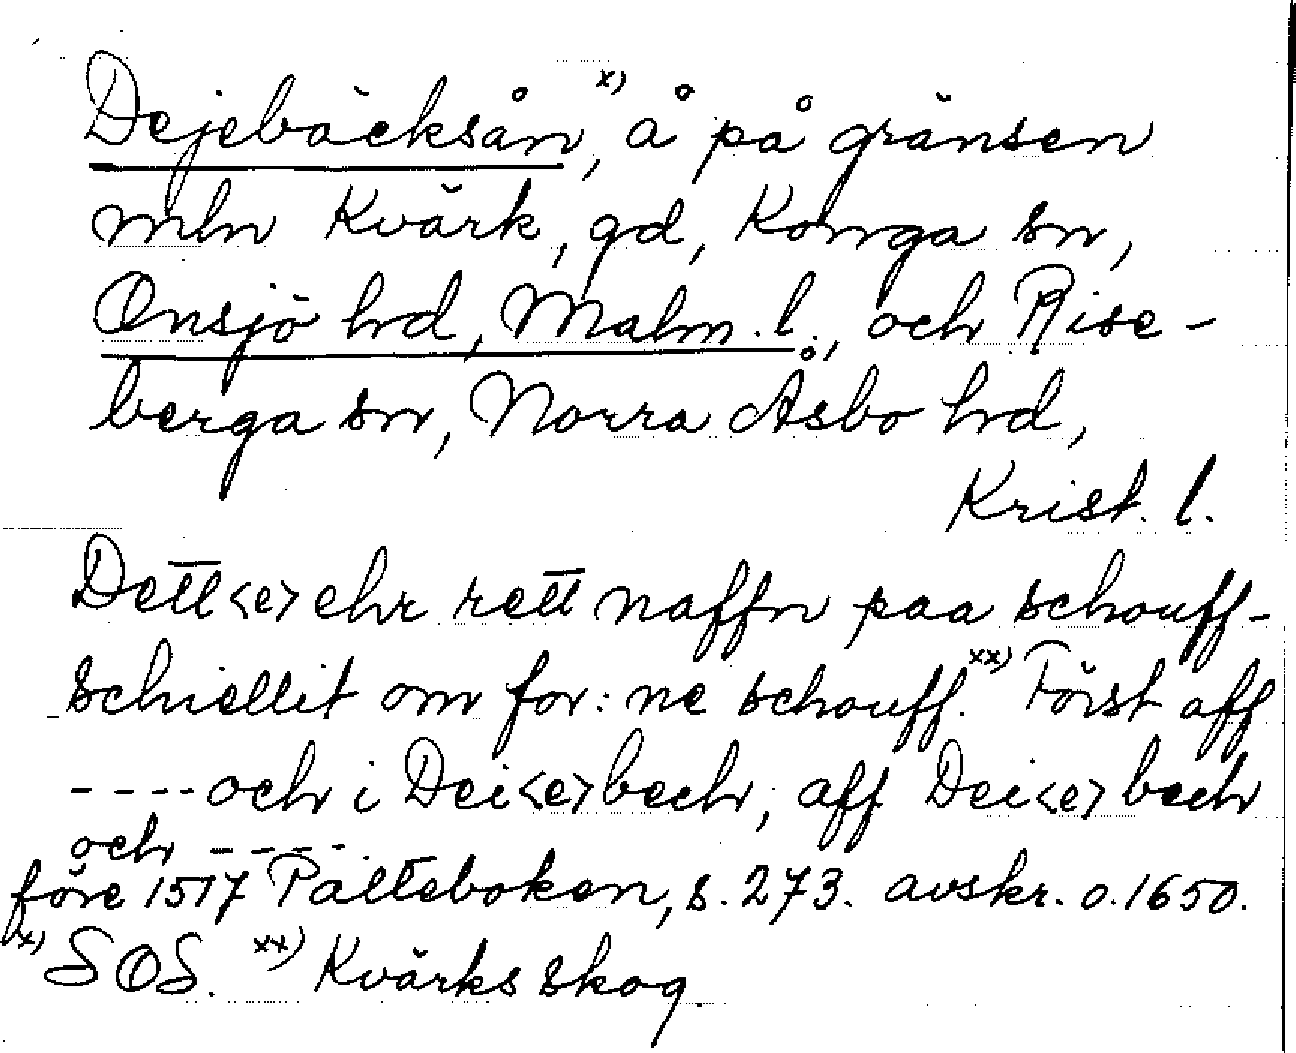 Dejebäcksån,x) å på gränsen
mln Kvärk, gd, Konga sn,
Onsjö hrd, Malm. l., och Rise-
berga sn, Norra Åsbo hrd,
Krist. l.
Dett<e> ehr rett naffn paa schouff-
schiellit om for: ne schouff.xx) Först aff
---- och i Dei<e>bech, aff Dei<e>bech
och ----.
före 1517 Pålteboken, s. 273. avskr. o. 1650.
x) SOS. xx) Kvärks skog.